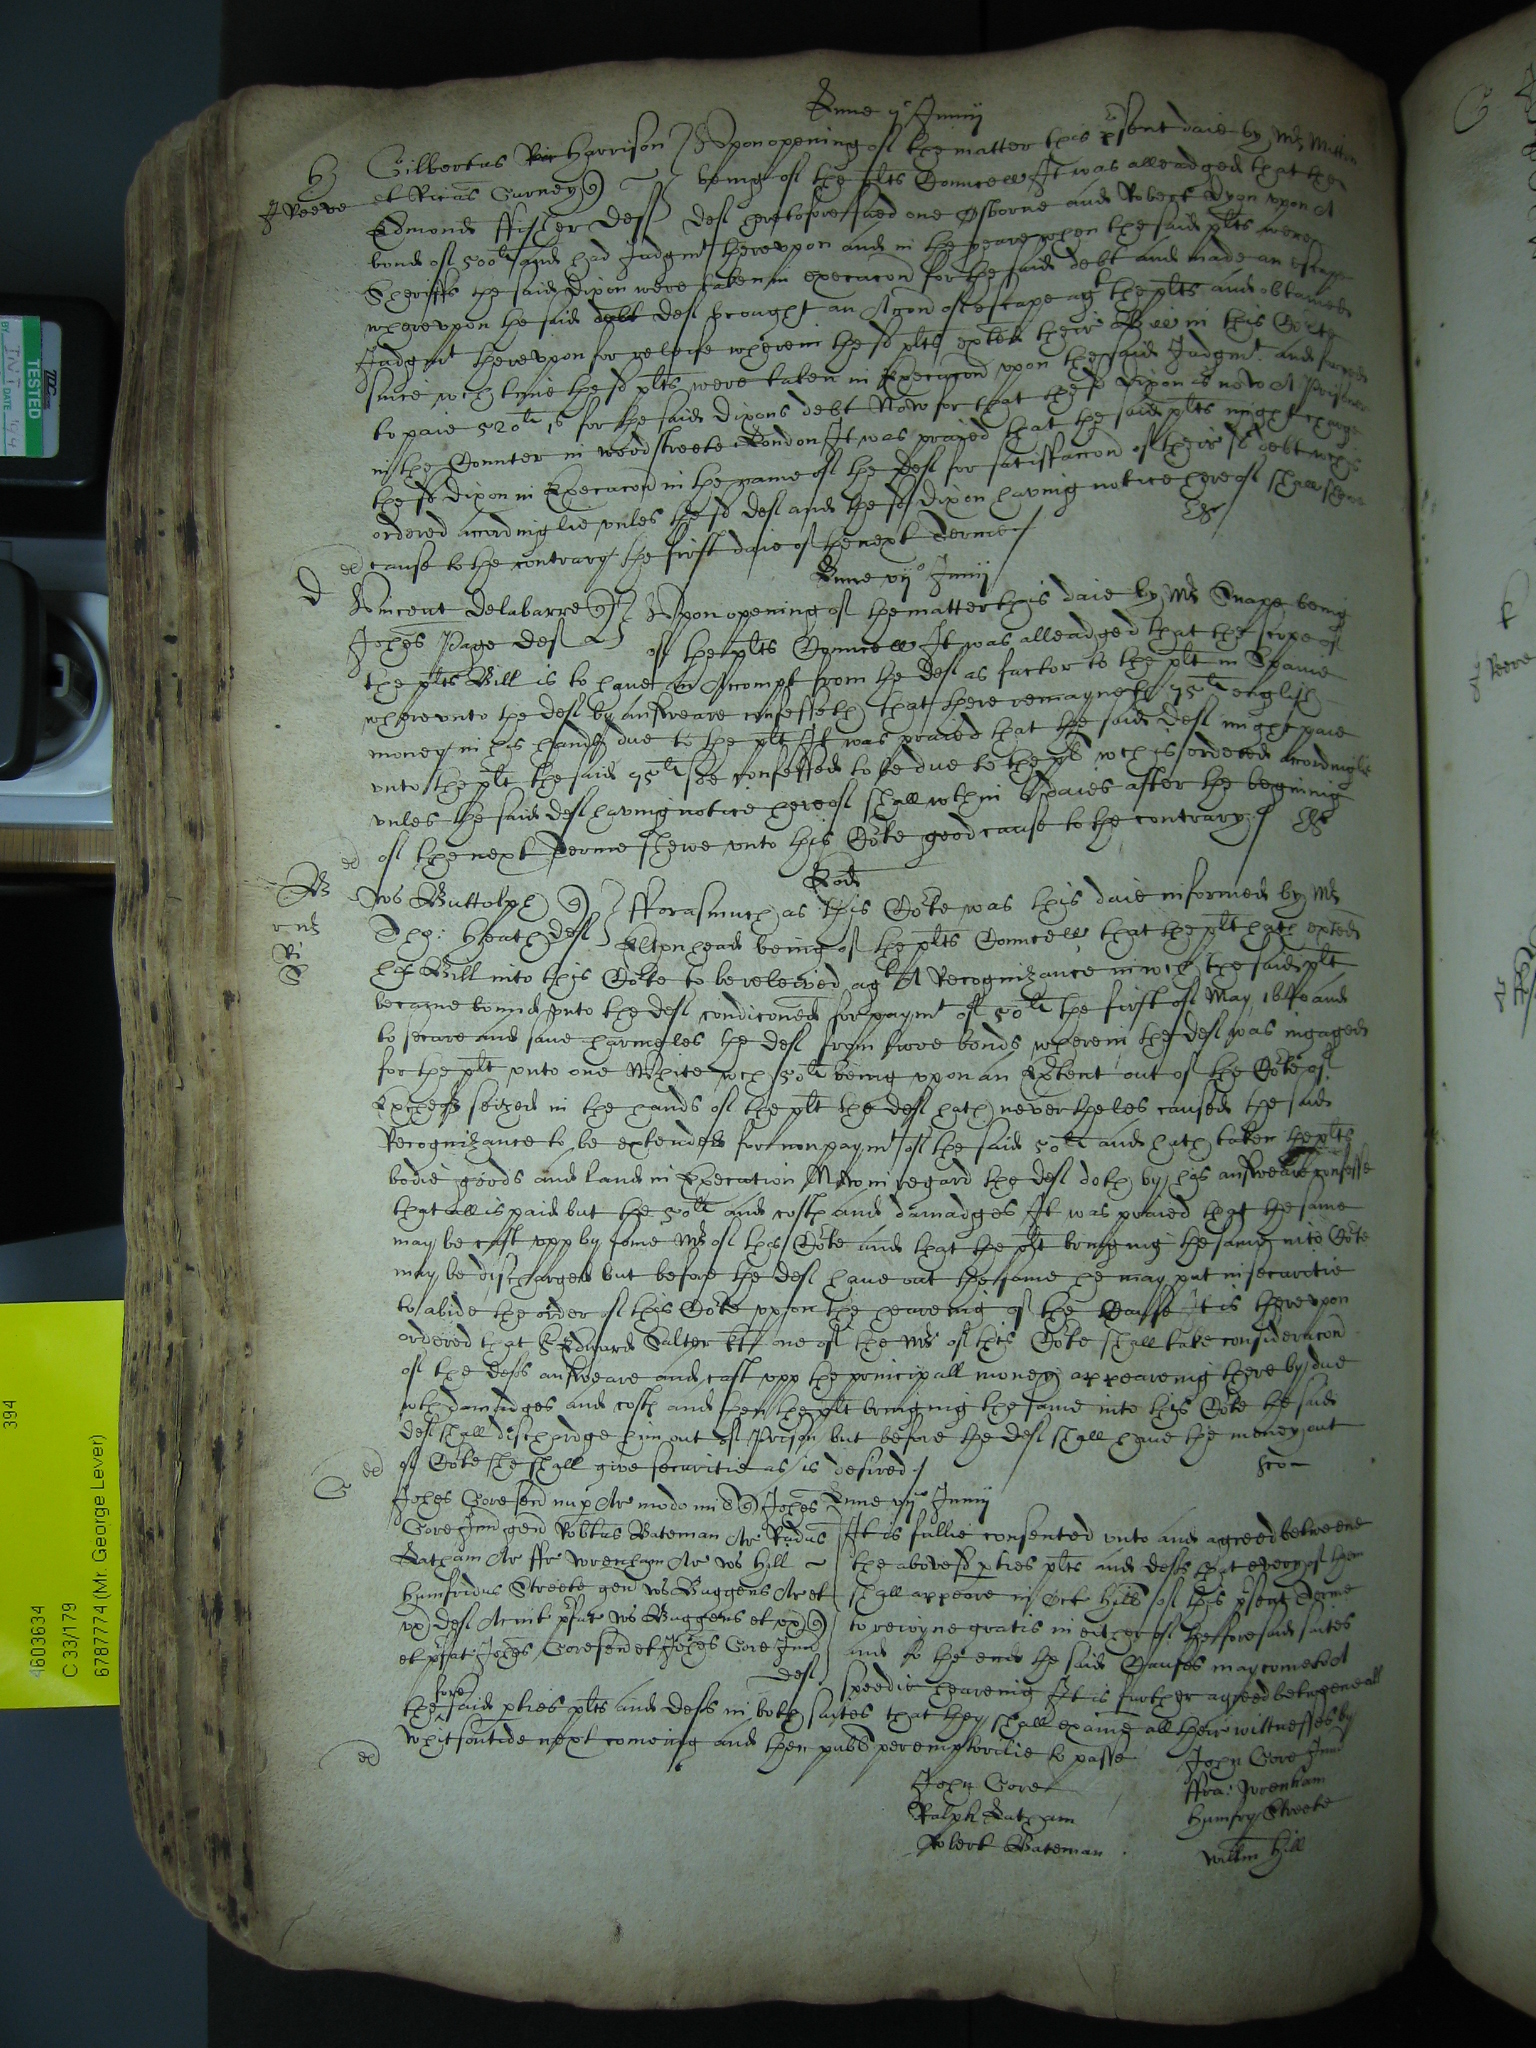 Lune ij Junij
H
J Reeve
Gilbertus Harrison Upon opening of the matter this pñte daie by Mr Mitton
et Ricus Gurney Q being of the plts Councell It was alleadged that the
Edmond ffisher Deft Deft heretofore sued one Osborne and Robert Dixon upon A
bond of 500li and had Judgmt thereupon and in the yeare when the said plts were
Sheriffs the said Dixon were taken in execucon for the said debt and made an escape
whereupon the said Deft brought an Accon of escape agt the plts and obtained
Judgmt thereupon for releife wherein the sd plts exted their Bill in this Corte
since wch time the sd plts were taken in Execucon upon the said Judgmt and forced
to paie 520li 1s for the said Dixons debt Now for that the sd Dixon is now A Prisoner
in the Counter in woodstreete London It was praied that the said plts might charge
the sd Dixon in Execucon in the name of the Deft for satisfaccon of their sd debt wch is
ordered accordinglie unles the sd Deft and the sd Dixon having notice hereof shall shewe
cause to the contrary the first daie of the next Terme
D
Lune vijo Junij
Vincent Delabarre Q Upon opening of the matter this daie by Mr Snape being
Johes Page Deft of the plts Councell It was alleadged that the scope of
the plts Bill is to have an Accompt from the Deft as factor to the plt in Spaine
whereunto the Deft by answeare confesseth that there remayneth 75li english
money in his hands due to the plt It was praied that the said Deft might paie
unto the plt the said 75li soe confessed to be due to the plt wch is ordered accordinglie
unles the said Deft having notice hereof shall wthin daies after the begining
of the next Terme shewe unto this Corte good cause to the contrary
B
Eod
Ws Buttolph Q fforasmuch as this Corte was this daie informed by Mr
Tho: Heath Deft Altonhead being of the plts Councell that the plt hath exted
his Bill into this Corte to be releived agt A Recognizance in wch the said plt
became bound unto the Deft condiconed for paymt of 50li the first of May and
to secure and save harmeles the Deft from twoe bonds wherein the Deft was ingaged
for the plt unto one White wch 50li being upon an Extent out of the Corte of
Exchequer seized in the hands of the plt the Deft hath nevertheles caused the said
Recognizance to be extended for nonpaymt of the said 50li and hath taken the plts
bodie goods and lands in Execution Now in regard the Deft doth by his answeare confesse
that all is paid but the 50li and costs and damadges It was praied that the same
may be cast upp by some Mr of this Corte and that the plt bringing the same into Corte
may be discharged but before the Deft have out the same he may put in securitie
to abide the order of this Corte upon the heareing of the Cause It is thereupon
ordered that Sr Edward Salter kt one of the Mrs of this Corte shall take consideracon
of the Defts answeare and cast upp the principall money appeareing thereby due
wth damadges and costs and then the plt bringing the same into this Corte the said
Deft shall dischardge him out of Prison but before the Deft shall have the money out
of Corte he shall give securitie as is desired
G
Johes Gore sen nup Ar modo mil Q Johes Lune vijo Junij
Gore Jun gen Robtus Bateman Ar Radus It is fullie consented unto and agreed betweene
Latham Ar ffr Wrenham Ar Ws Hill the abovesd pties plts and Defts that every of them
Humfridus Streete gen Ws Buggens Ar et shall appeare in Oct Hill of this psent Terme
ux Deft Acnit pfat Ws Buggens et ux Q to reioyne gratis in either of the foresaid suites
et pfat Johes Gore sen et Johes Gore Jun and to the end the said Causes may come to A
Deft speedie heareing It is further agreed betweene all
the fore said pties plts and Defts in both suites that they shall examine all their wittnesses by
Whitsontide next comeing and then publ peremptorilie to passe
John Gore John Gore Jun
Ralph Latham ffra: Wrenham
Robert Bateman Humfry Streete
Willm Hill
TESTED
DATE
394
4603634
C 33/179
6787774 (Mr. George Lever)